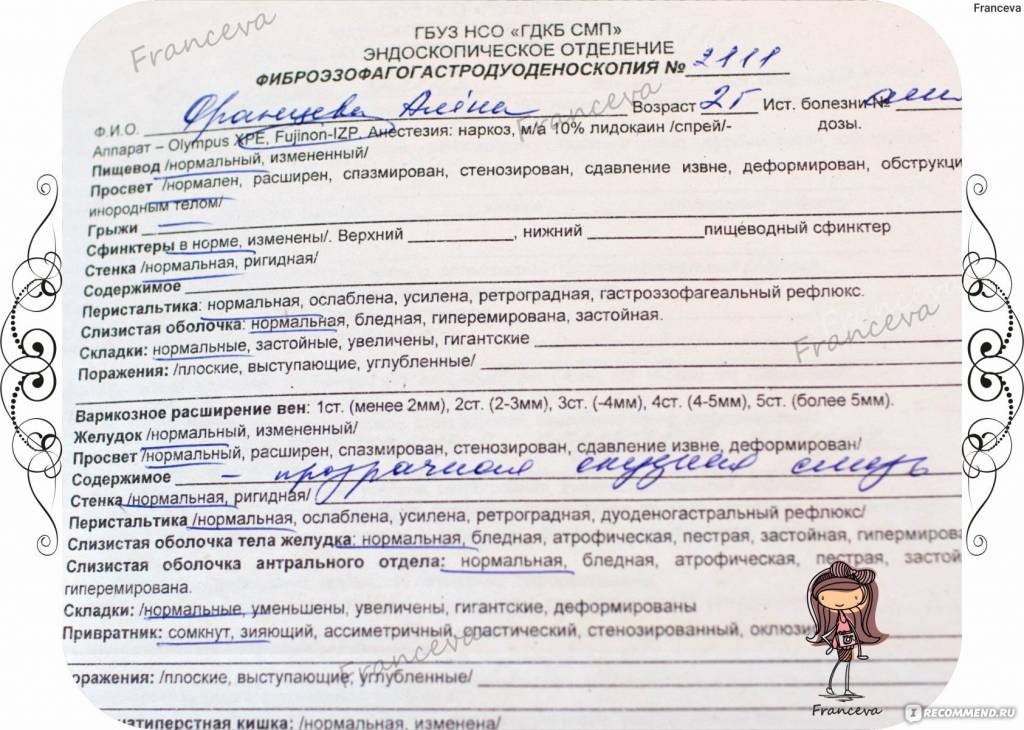 Franceva
ГБУЗ НСО «ГДКБ СМП»
ЭНДОСКОПИЧЕСКОЕ ОТДЕЛЕНИЕ
ФИБРОЭЗОФАГОГАСТРОДУОДЕНОСКОПИЯ № 2111
Ф.И.О. Францева Алёна Возраст 2г Ист. болезни №
Аппарат – Olympus XPE, Fujinon-IZP. Анестезия: наркоз, м/а 10% лидокаин /спрей/- дозы.
Пищевод /нормальный, измененный/
Просвет /нормален, расширен, спазмирован, стенозирован, сдавление извне, деформирован, обструкци
инородным телом/
Грыжи
Сфинктеры в норме, изменены/. Верхний ____, нижний ____ пищеводный сфинктер
Стенка /нормальная, ригидная/
Содержимое
Перистальтика: нормальная, ослаблена, усилена, ретроградная, гастроэзофагеальный рефлюкс.
Слизистая оболочка: нормальная, бледная, гиперемирована, застойная.
Складки: нормальные, застойные, увеличены, гигантские
Поражения: /плоские, выступающие, углубленные/
Варикозное расширение вен: 1ст. (менее 2мм), 2ст. (2-3мм), 3ст. (-4мм), 4ст. (4-5мм), 5ст. (более 5мм).
Желудок /нормальный, измененный/
Просвет /нормальный, расширен, спазмирован, стенозирован, сдавление извне, деформирован/
Содержимое - прозрачная скудная слизь
Стенка /нормальная, ригидная/
Перистальтика /нормальная, ослаблена, усилена, ретроградная, дуоденогастральный рефлюкс/
Слизистая оболочка тела желудка: нормальная, бледная, атрофическая, пестрая, застойная, гипермирова
Слизистая оболочка антрального отдела: нормальная, бледная, атрофическая, пестрая, застой
гиперемирована.
Складки: /нормальные, уменьшены, увеличены, гигантские, деформированы
Привратник: сомкнут, зияющий, ассиметричный, спастический, стенозированный, оклюзи
оражения: /плоские, выступающие, углубленные/
натиперстная кишка: /нормальная, изменена/
Franceva
Franceva
Franceva
Franceva
Franceva
IRECOMMEND.RU